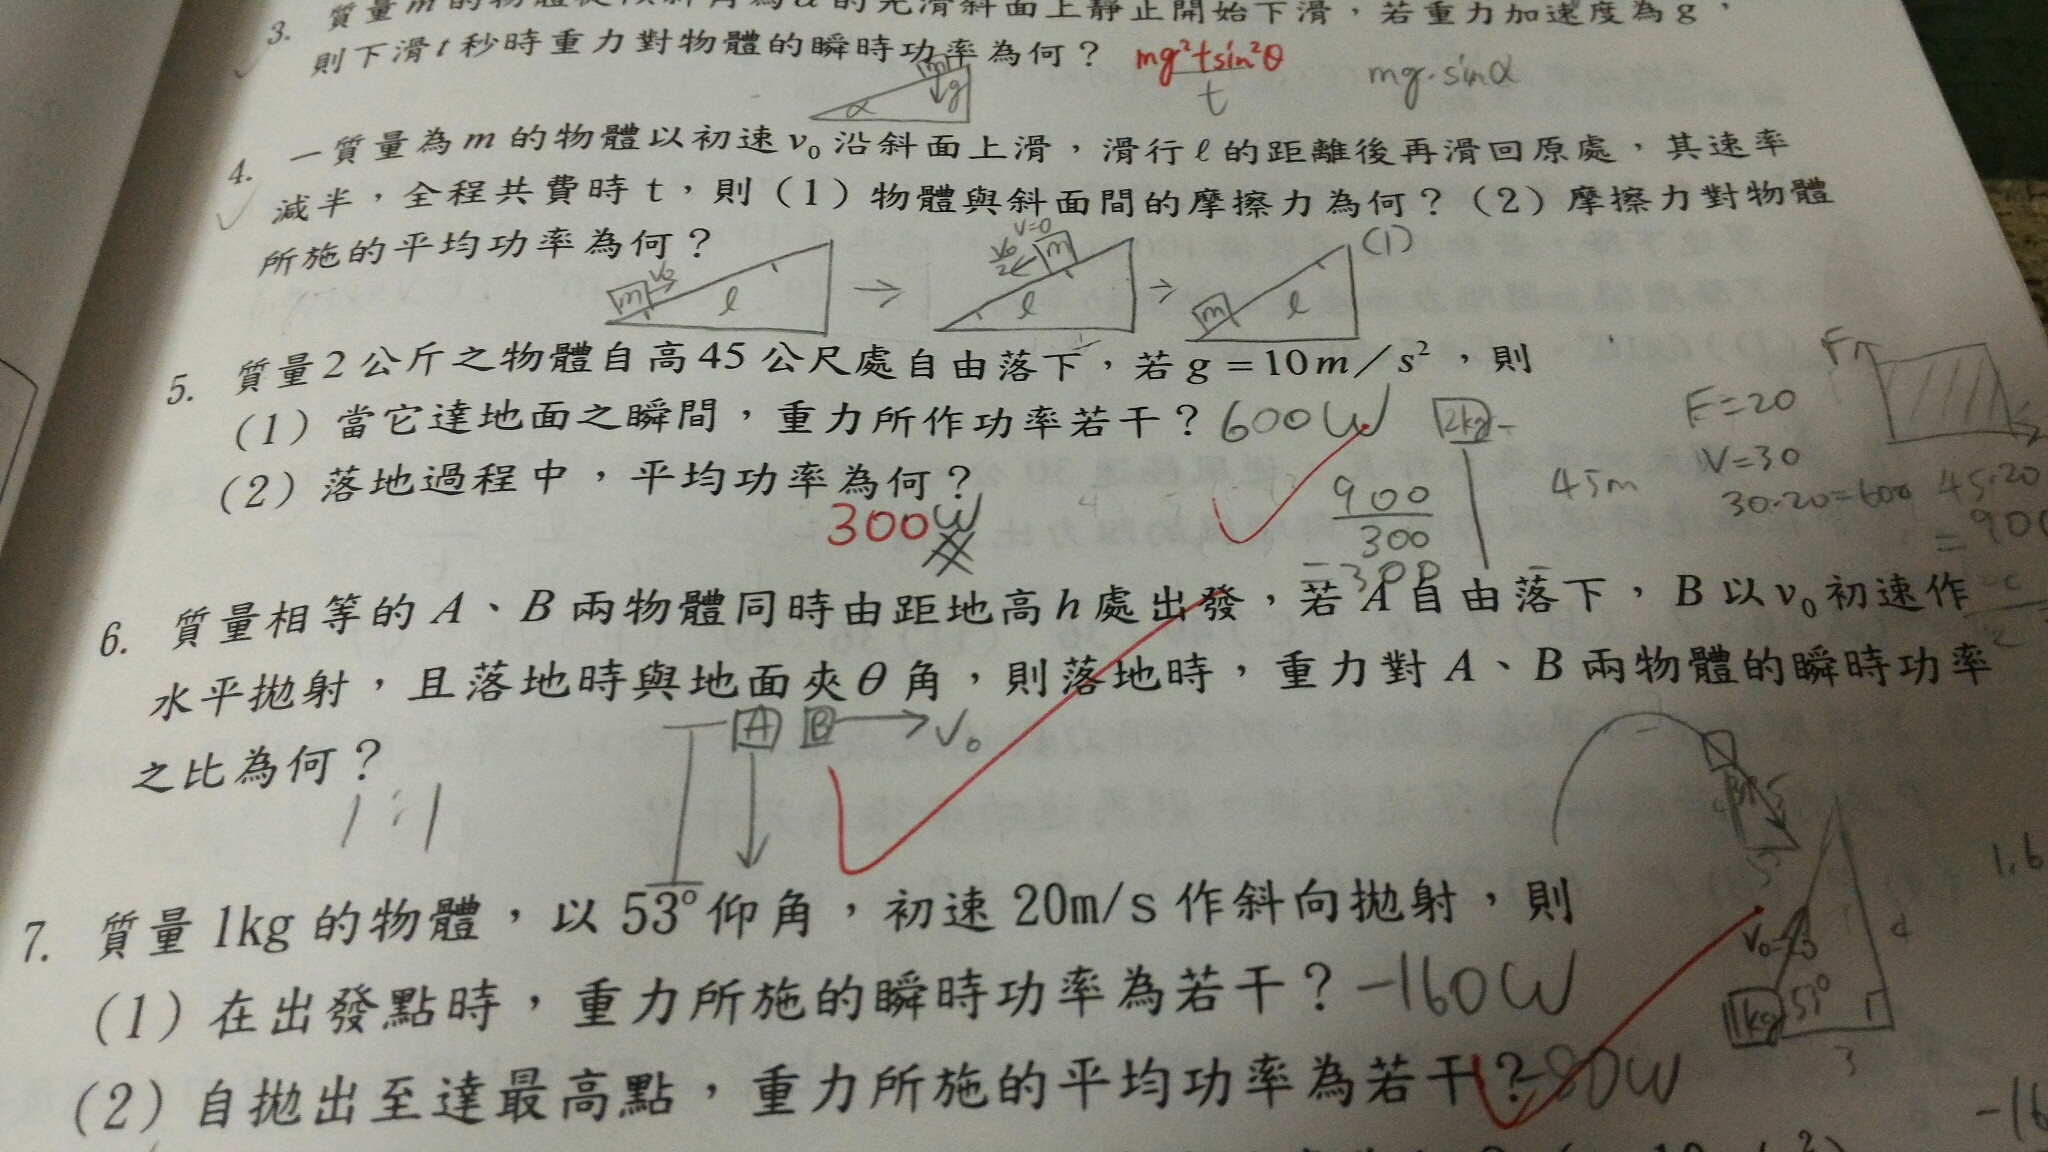 3. 質量m的物體從傾斜角為α的光滑斜面上靜止開始下滑,若重力加速度為g,
則下滑t秒時重力對物體的瞬時功率為何? mg²tsin²θ
t
mg·sinα
m
α
g
4. 一質量為m的物體以初速v₀沿斜面上滑,滑行ℓ的距離後再滑回原處,其速率
減半,全程共費時t,則(1)物體與斜面間的摩擦力為何?(2)摩擦力對物體
所施的平均功率為何?
m v₀ ℓ
V=0 m ℓ
m ℓ
(1)
5. 質量2公斤之物體自高45公尺處自由落下,若g=10m/s²,則
(1)當它達地面之瞬間,重力所作功率若干? 600W
(2)落地過程中,平均功率為何?
300W
2kg
45m
900
300
F=20
V=30
30·20=600
F
45·20
=900
6. 質量相等的A、B兩物體同時由距地高h處出發,若A自由落下,B以v₀初速作
水平拋射,且落地時與地面夾θ角,則落地時,重力對A、B兩物體的瞬時功率
之比為何?
1:1
A B V₀
7. 質量1kg的物體,以53°仰角,初速20m/s作斜向拋射,則
(1)在出發點時,重力所施的瞬時功率為若干? -160W
(2)自拋出至達最高點,重力所施的平均功率為若干? -80W
1kg 53°
4
3
1.6
-16